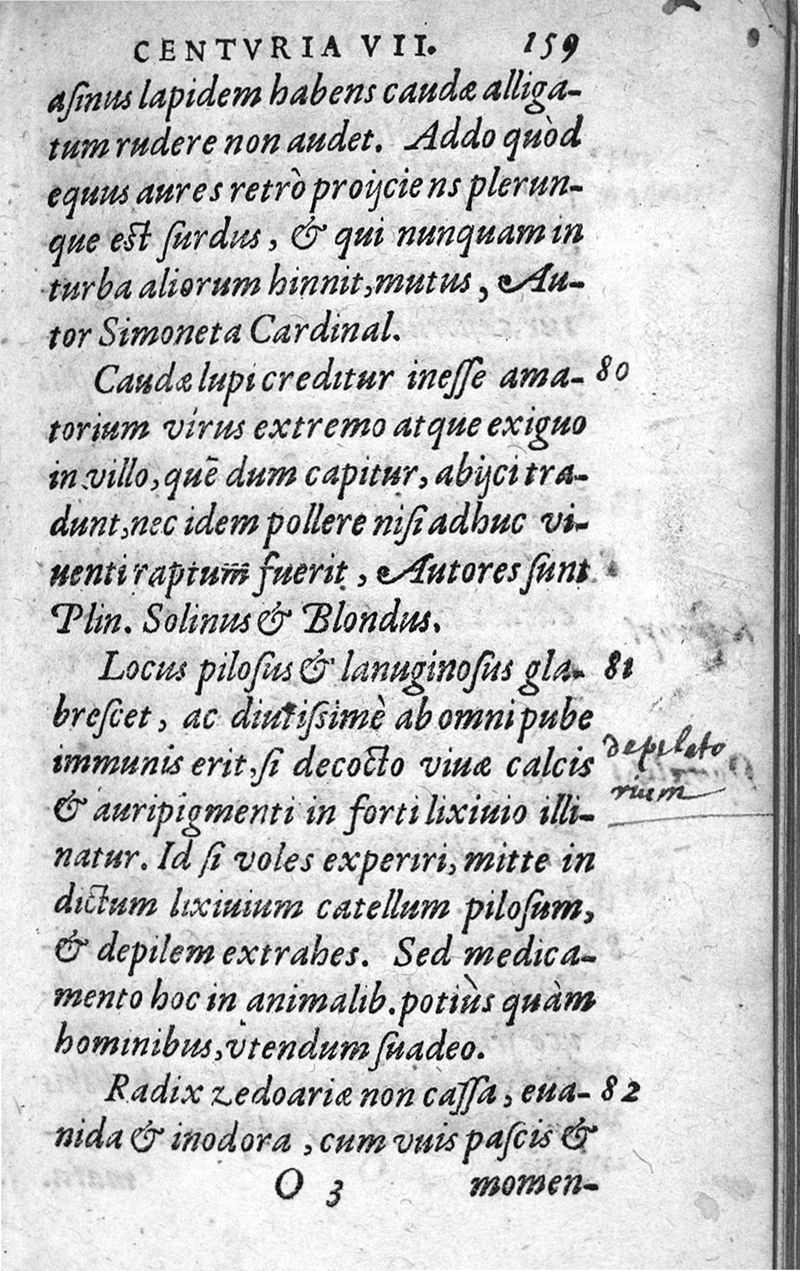 CENTVRIA VII. 159
asinus lapidem habens caudæ alliga-
tum rudere non audet. Addo quòd
equus aures retrò proijciens plerun-
que est surdus, & qui nunquam in
turba aliorum hinnit, mutus, Au-
tor Simoneta Cardinal.
Caudæ lupi creditur inesse ama- 80
torium virus extremo atque exiguo
in villo, quē dum capitur, abijci tra-
dunt, nec idem pollere nisi adhuc vi-
uenti raptum̄ fuerit, Autores sunt
Plin. Solinus & Blondus.
Locus pilosus & lanuginosus gla- 81
brescet, ac diutissimè ab omni pube
immunis erit, si decocto viuæ calcis
& auripigmenti in forti lixiuio illi-
natur. Id si voles experiri, mitte in
dictum lixiuium catellum pilosum,
& depilem extrahes. Sed medica-
mento hoc in animalib. potiùs quàm
hominibus, vtendum suadeo.
depilato
rium
Radix zedoariæ non cassa, eua- 82
nida & inodora, cum vuis pascis &
O 3 momen-